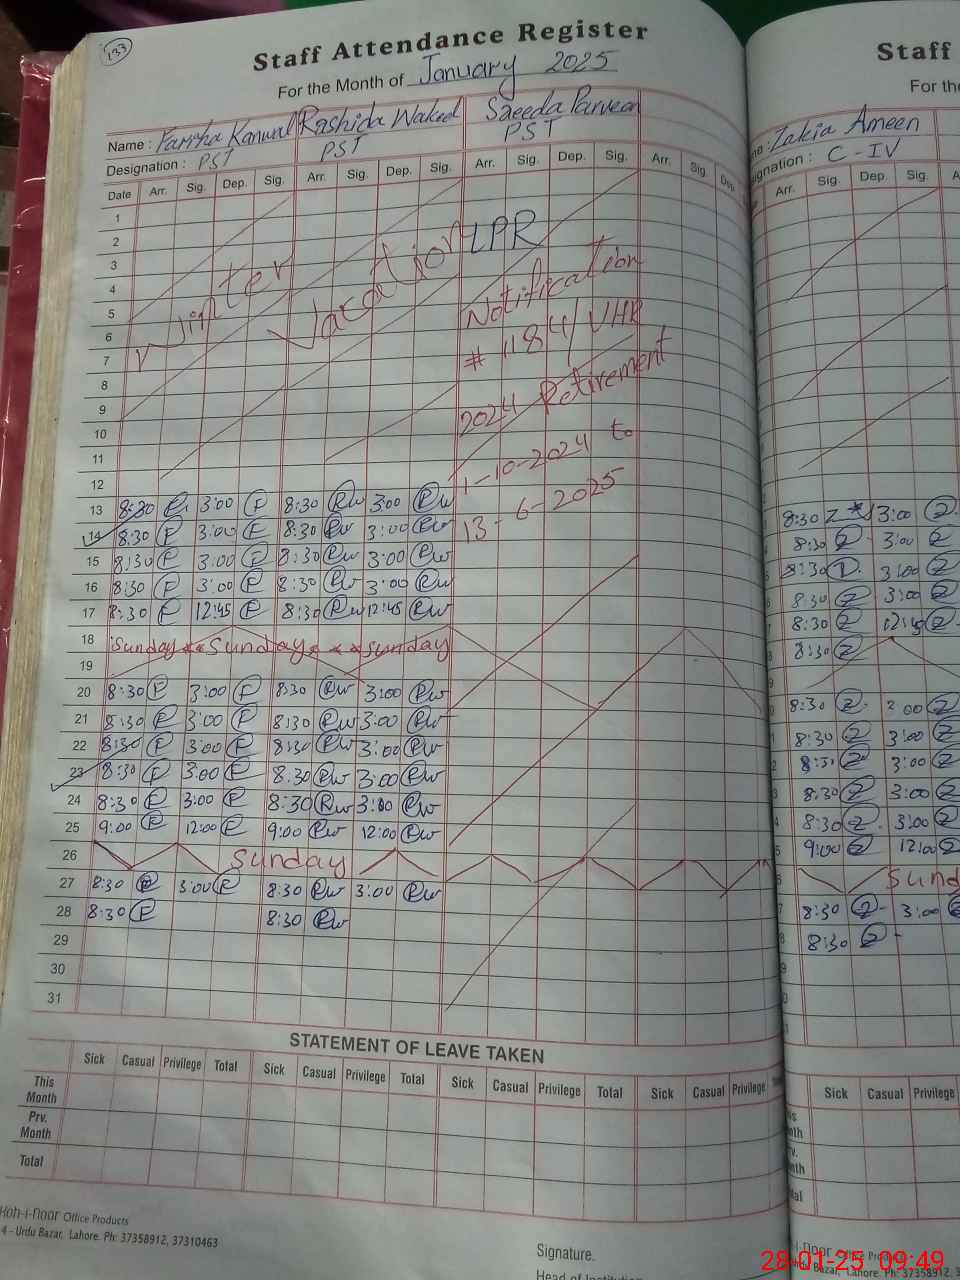 133
Staff Attendance Register
For the Month of January 2025
Name : Farrha Kanwal Rashida Waheed Saeeda Parveen
Designation : PST PST PST
Date Arr. Sig. Dep. Sig. Arr. Sig. Dep. Sig. Arr. Sig. Dep. Sig. Arr. Sig. Dep.
1
2
3
4
5
6
7
8
9
10
11
12
Winter Vacation
LPR
Notification
# 1184/VHR
2024 Retirement
1-10-2024 to
13-6-2025
13 8:30 3:00 F 8:30 Rw 3:00 Rw
14 8:30 F 3:00 F 8:30 Rw 3:00 Rw
15 8:30 F 3:00 F 8:30 Rw 3:00 Rw
16 8:30 F 3:00 F 8:30 Rw 3:00 Rw
17 8:30 F 12:45 F 8:30 Rw 12:45 Rw
18 Sunday ** Sunday * * Sunday
19
20 8:30 F 3:00 F 8:30 Rw 3:00 Rw
21 8:30 F 3:00 F 8:30 Rw 3:00 Rw
22 8:30 F 3:00 F 8:30 Rw 3:00 Rw
23 8:30 F 3:00 F 8:30 Rw 3:00 Rw
24 8:30 F 3:00 F 8:30 Rw 3:00 Rw
25 9:00 F 12:00 F 9:00 Rw 12:00 Rw
26 Sunday
27 8:30 F 3:00 F 8:30 Rw 3:00 Rw
28 8:30 F 8:30 Rw
29
30
31
STATEMENT OF LEAVE TAKEN
Sick Casual Privilege Total Sick Casual Privilege Total Sick Casual Privilege Total Sick Casual Privilege
This Month
Prv. Month
Total
Koh-i-noor Office Products
4 – Urdu Bazar, Lahore. Ph: 37358912, 37310463
Signature.
Staff
For the
Zakia Ameen
Designation : C-IV
Arr. Sig. Dep. Sig.
8:30 Z 3:00 Z
8:30 Z 3:00 Z
8:30 Z 3:00 Z
8:30 Z 3:00 Z
8:30 Z 12:45 Z
8:30 Z
8:30 Z 3:00 Z
8:30 Z 3:00 Z
8:30 Z 3:00 Z
8:30 Z 3:00 Z
8:30 Z 3:00 Z
9:00 Z 12:00 Z
Sund
8:30 Z 3:00 Z
8:30 Z
Sick Casual Privilege
Office Products
Bazar, Lahore. Ph: 37358912,
28-01-25 09:49